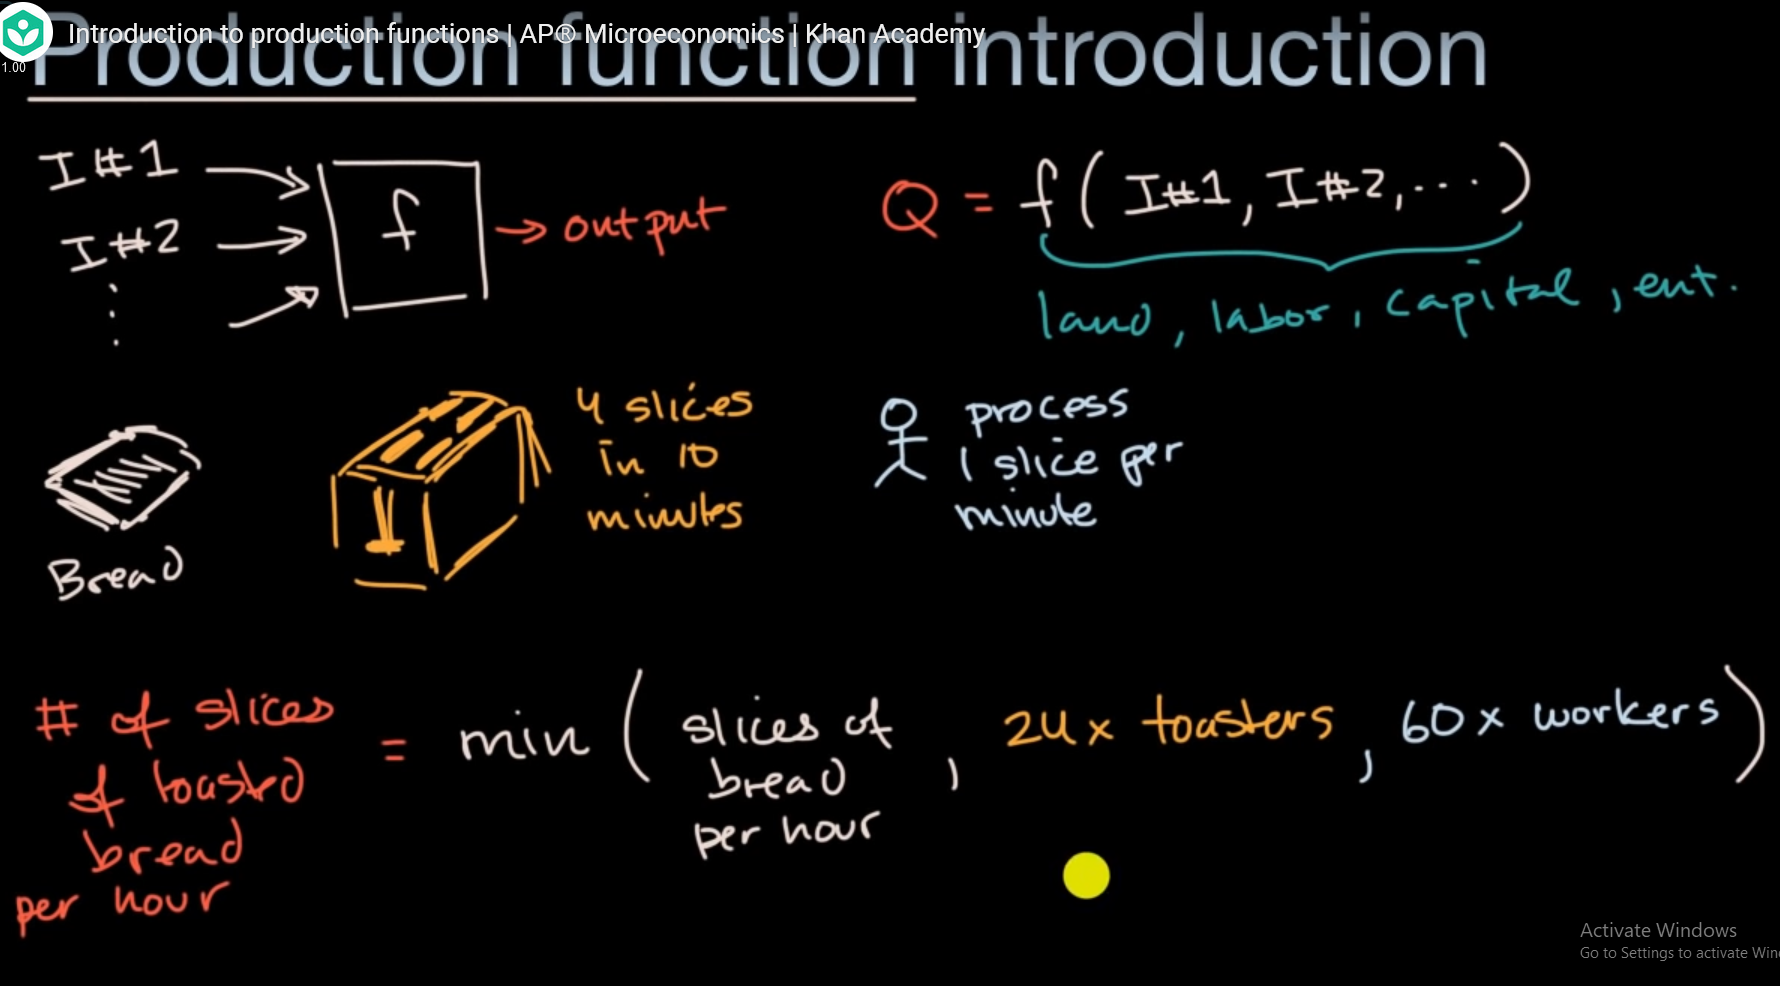 Introduction to production functions | AP® Microeconomics | Khan Academy
1.00
Production function introduction
I#1
I#2
f
→ output
Q = f(I#1, I#2, ...)
land, labor, capital, ent.
Bread
4 slices
in 10
minutes
process
1 slice per
minute
# of slices
of toasted
bread
per hour
= min ( slices of
bread
per hour
, 24 x toasters , 60 x workers )
Activate Windows
Go to Settings to activate Win